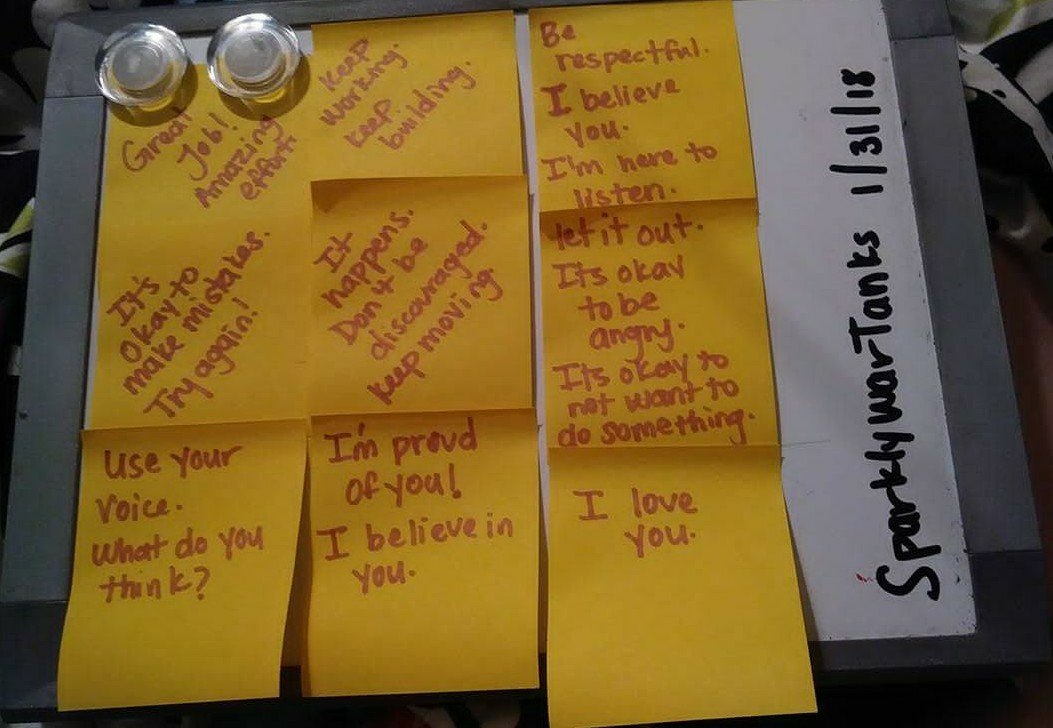 Great
Job!
Amazing
effort!
Keep
working.
keep
building.
Be
respectful.
I believe
you.
I'm here to
listen.
It's
okay to
make mistakes.
Try again!
It
happens.
Don't be
discouraged.
keep moving
let it out.
Its okay
to be
angry.
Its okay to
not want to
do something.
Use your
voice.
What do you
think?
I'm proud
of you!
I believe in
you.
I love
you.
SparklywarTanks 1/31/18